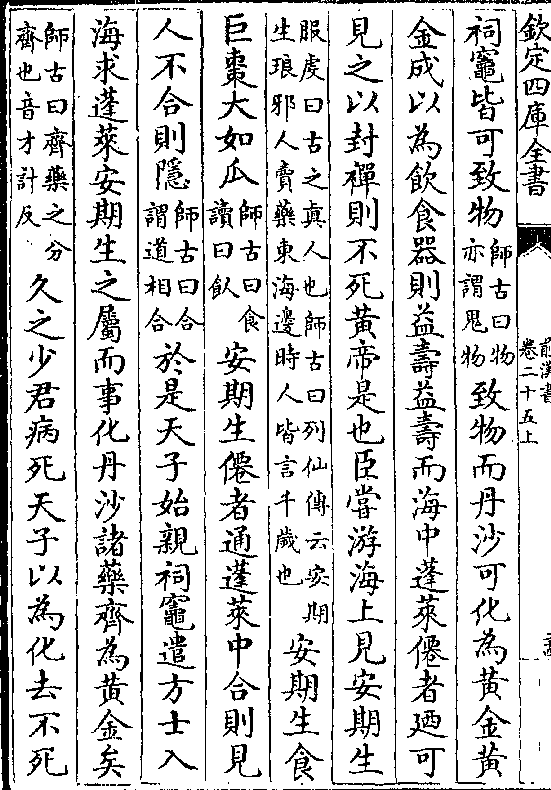 欽定四庫全書
前漢書
卷二十五上
祠竈皆可致物師古曰物亦謂鬼物致物而丹沙可化為黃金黃
金成以為飲食器則益壽益壽而海中蓬萊僊者廼可
見之以封禪則不死黃帝是也臣嘗游海上見安期生
服虔曰古之真人也師古曰列仙傳云安期生琅邪人賣藥東海邊時人皆言千歲也安期生食
巨棗大如瓜師古曰食讀曰飤安期生僊者通蓬萊中合則見
人不合則隱師古曰合謂道相合於是天子始親祠竈遣方士入
海求蓬萊安期生之屬而事化丹沙諸藥齊為黃金矣
師古曰齊藥之分齊也音才計反久之少君病死天子以為化去不死